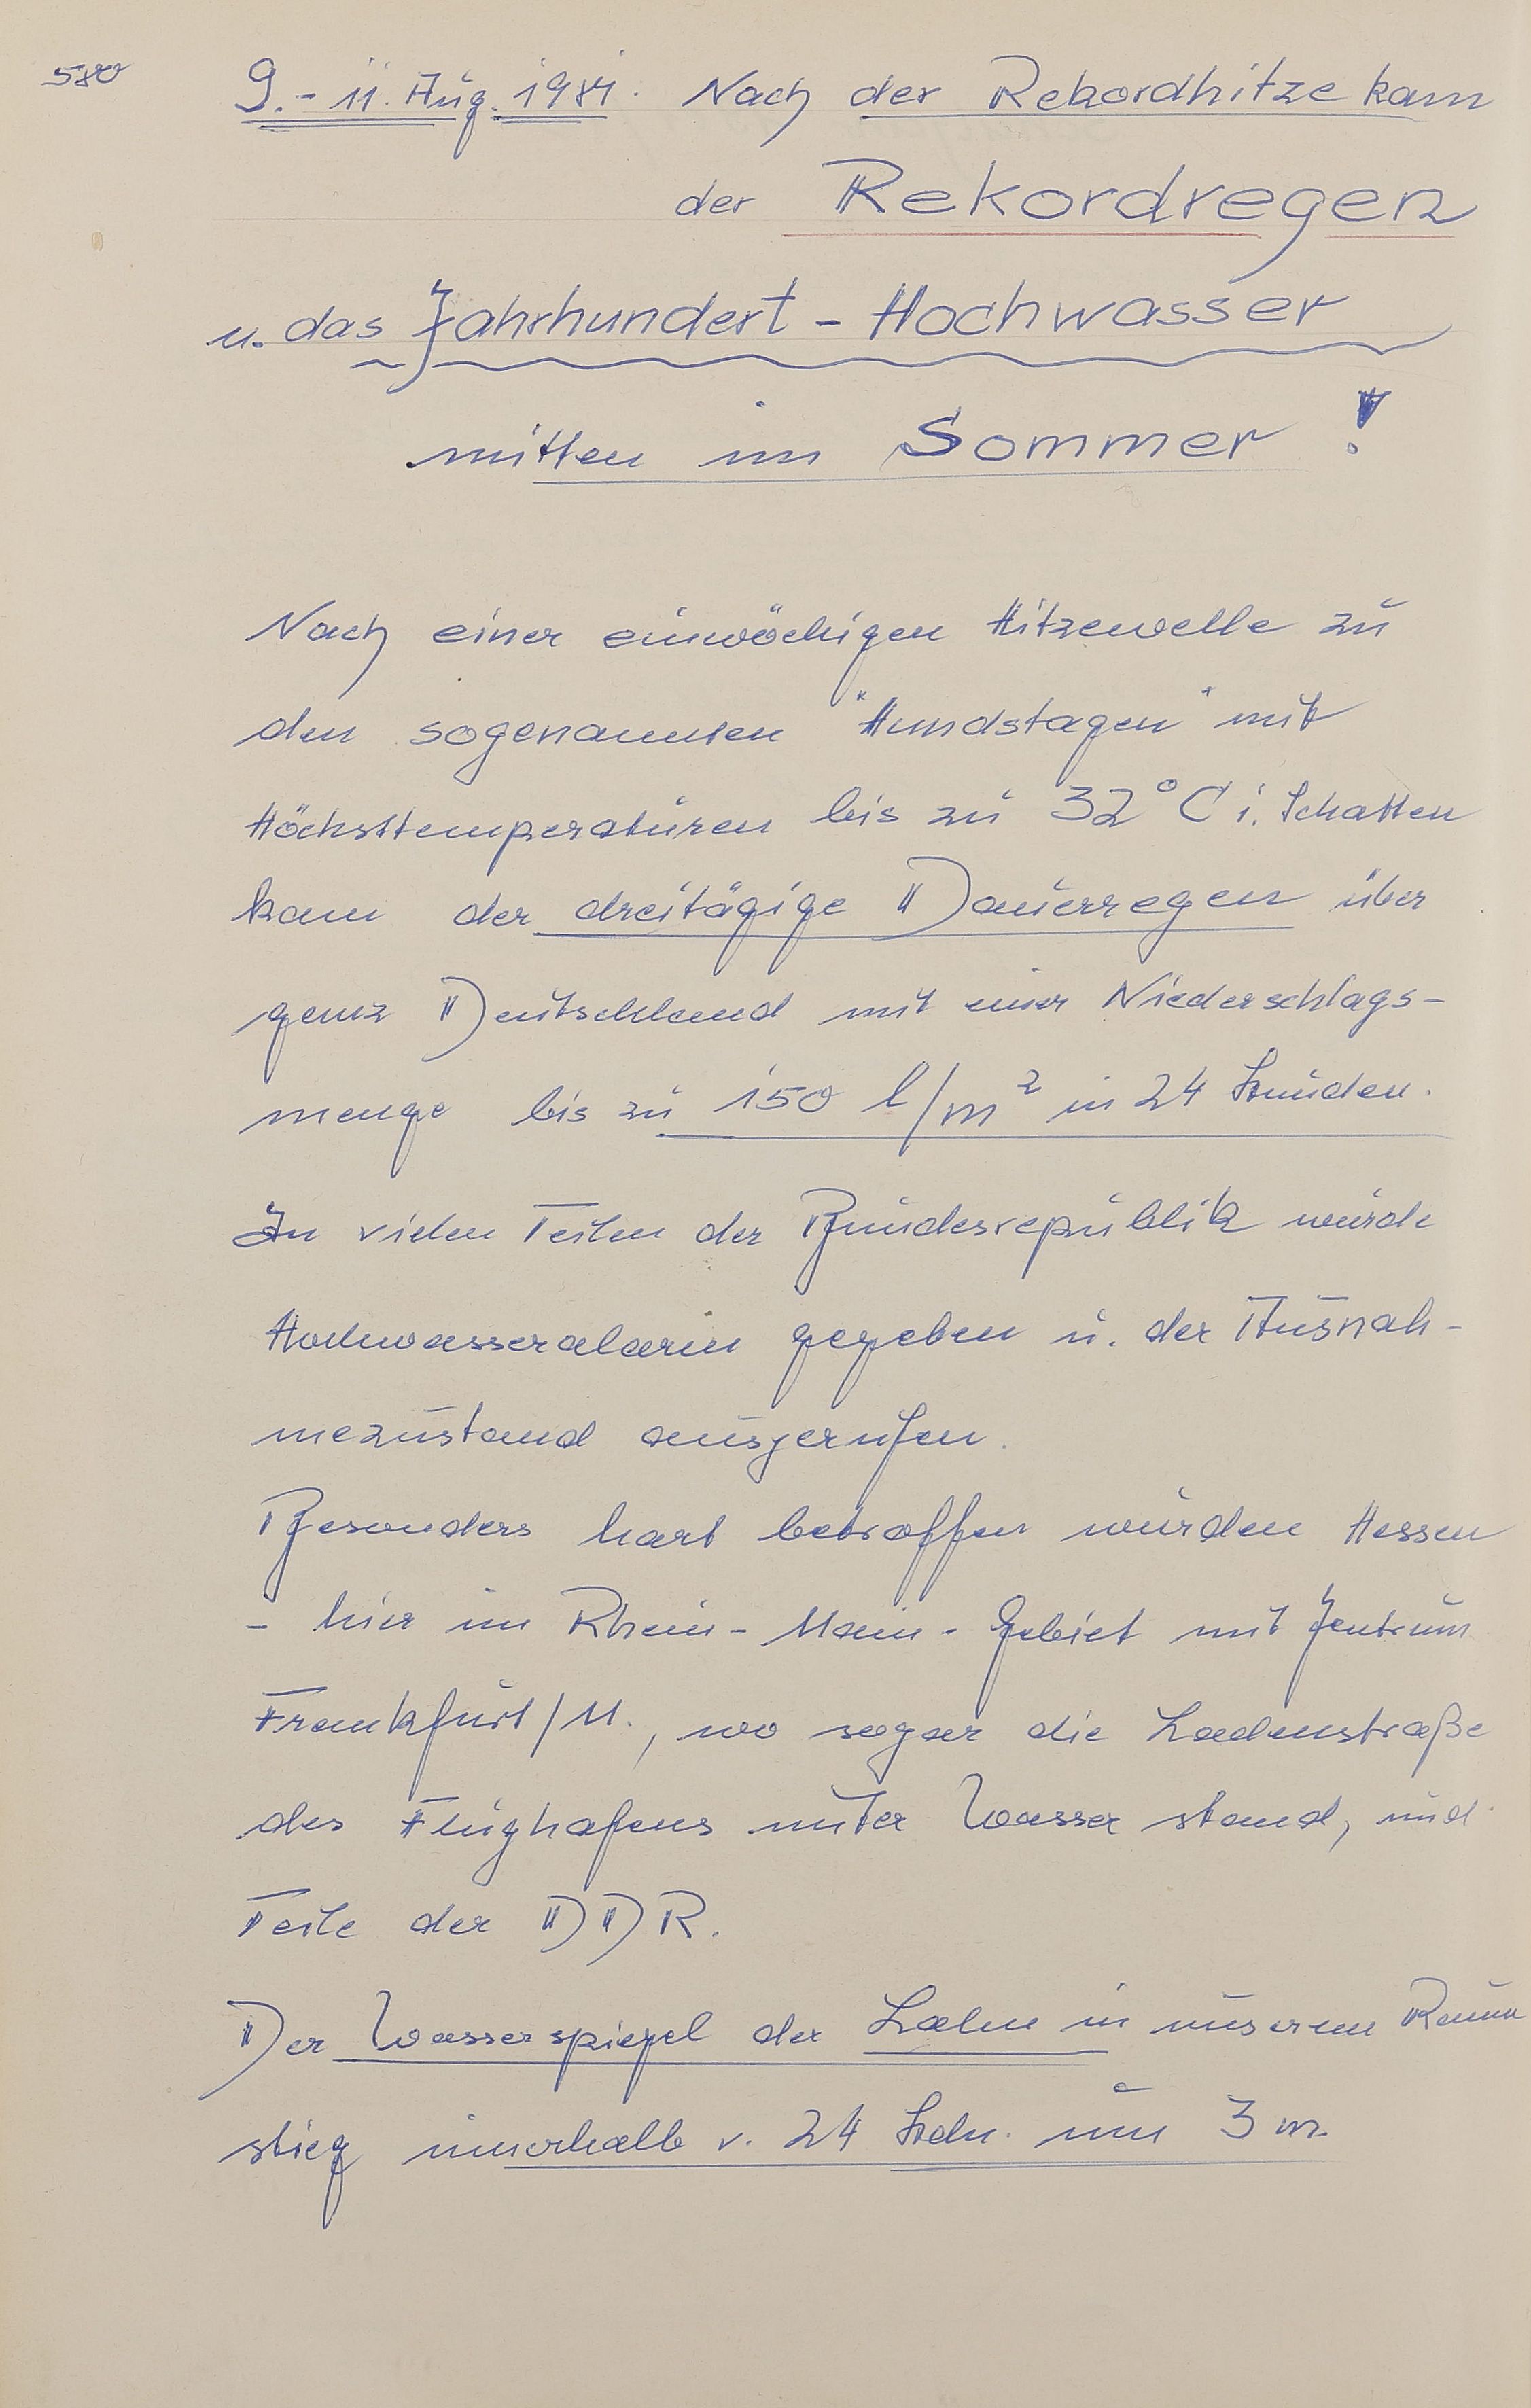 580
9.-11. Aug. 1981. Nach der Rekordhitze kam
der Rekordregen
u. das Jahrhundert-Hochwasser
mitten im Sommer!
Nach einer einwöchigen Hitzewelle zu
den sogenannten "Hundstagen" mit
Höchsttemperaturen bis zu 32°C i. Schatten
kam der dreitägige Dauerregen über
ganz Deutschland mit einer Niederschlags-
menge bis zu 150 l/m² in 24 Stunden.
In vielen Teilen der Bundesrepublik wurde
Hochwasseralarm gegeben u. der Ausnah-
mezustand ausgerufen.
Besonders hart betroffen wurden Hessen
- hier im Rhein-Main-Gebiet mit Zentrum
Frankfurt/M., wo sogar die Ladenstraße
des Flughafens unter Wasser stand, und
Teile der DDR.
Der Wasserspiegel der Lahn in unserem Raum
stieg innerhalb v. 24 Stdn. um 3 m